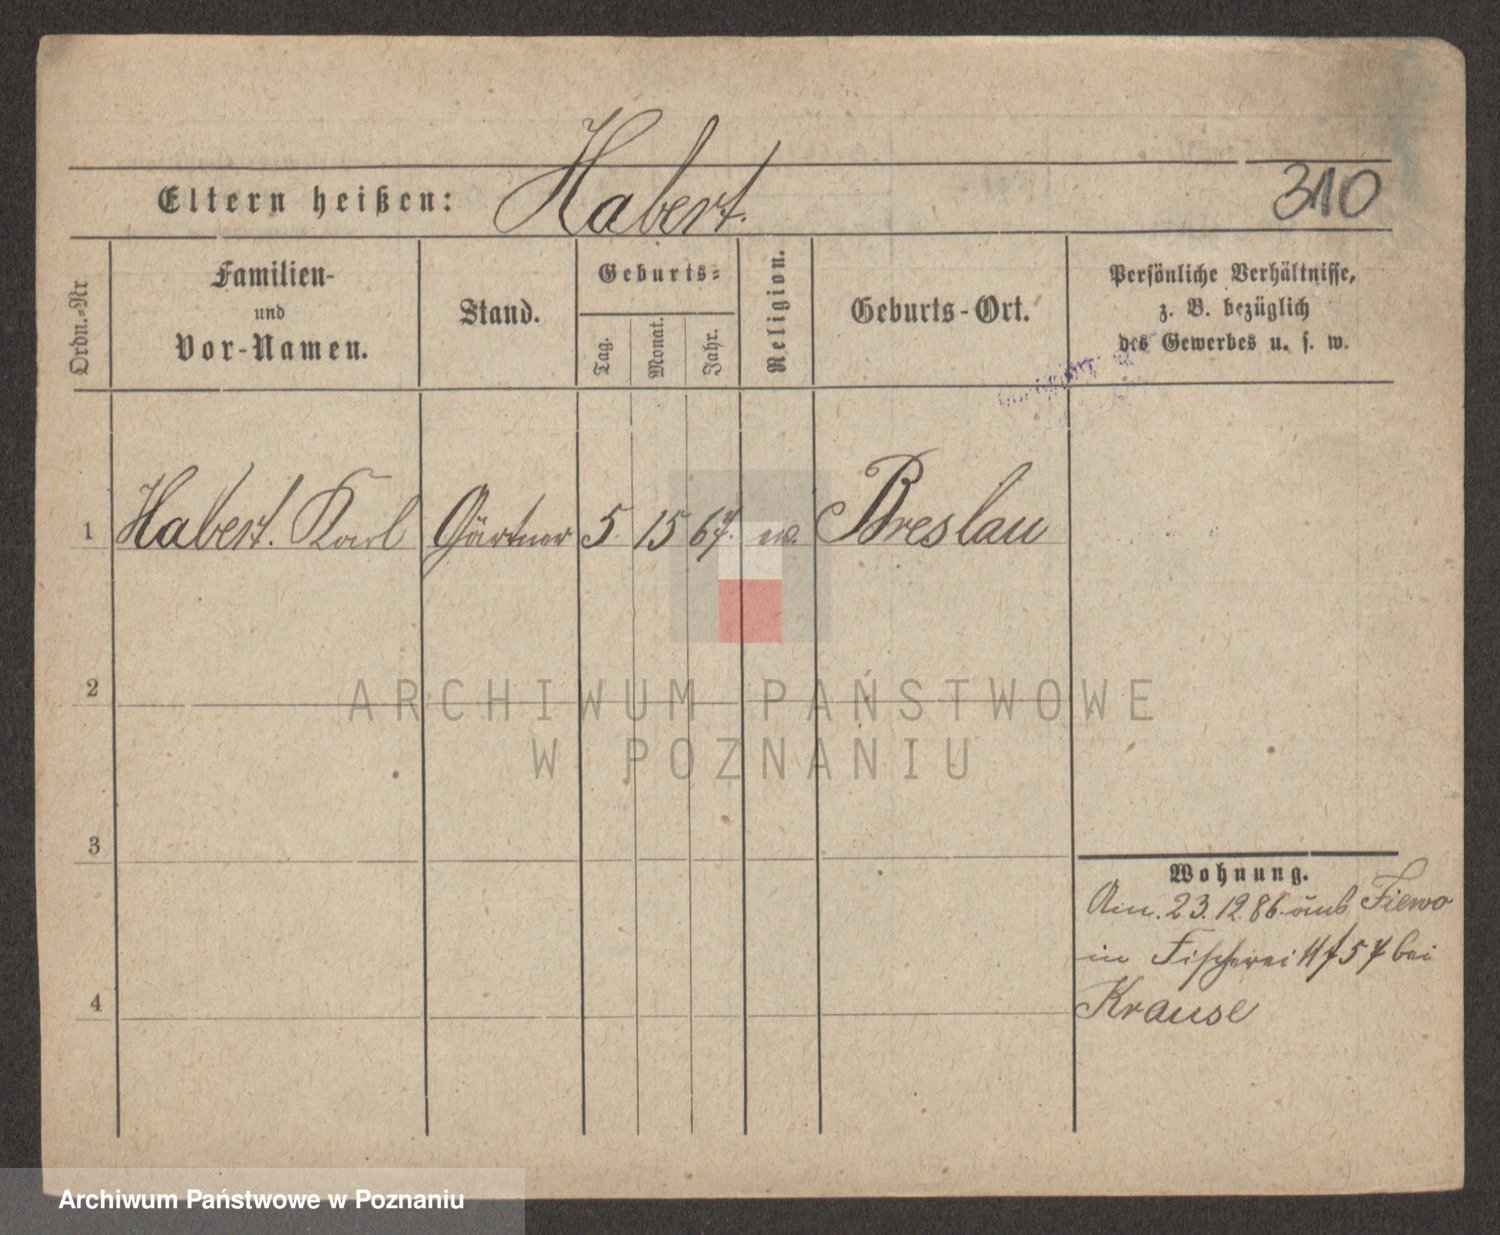 Eltern heißen: Habert.
310
Ordn.-Nr
Familien-
und
Vor-Namen.
Stand.
Geburts-
Tag.
Monat.
Jahr.
Religion.
Geburts-Ort.
Persönliche Verhältnisse,
z. B. bezüglich
des Gewerbes u. s. w.
1 Habert. Karl Gärtner 5 15 67. Breslau
2
ARCHIWUM PAŃSTWOWE
W POZNANIU
3
Wohnung.
Am. 23.12.86 aus
in Fischerei 57 bei
4
Krause
Archiwum Państwowe w Poznaniu